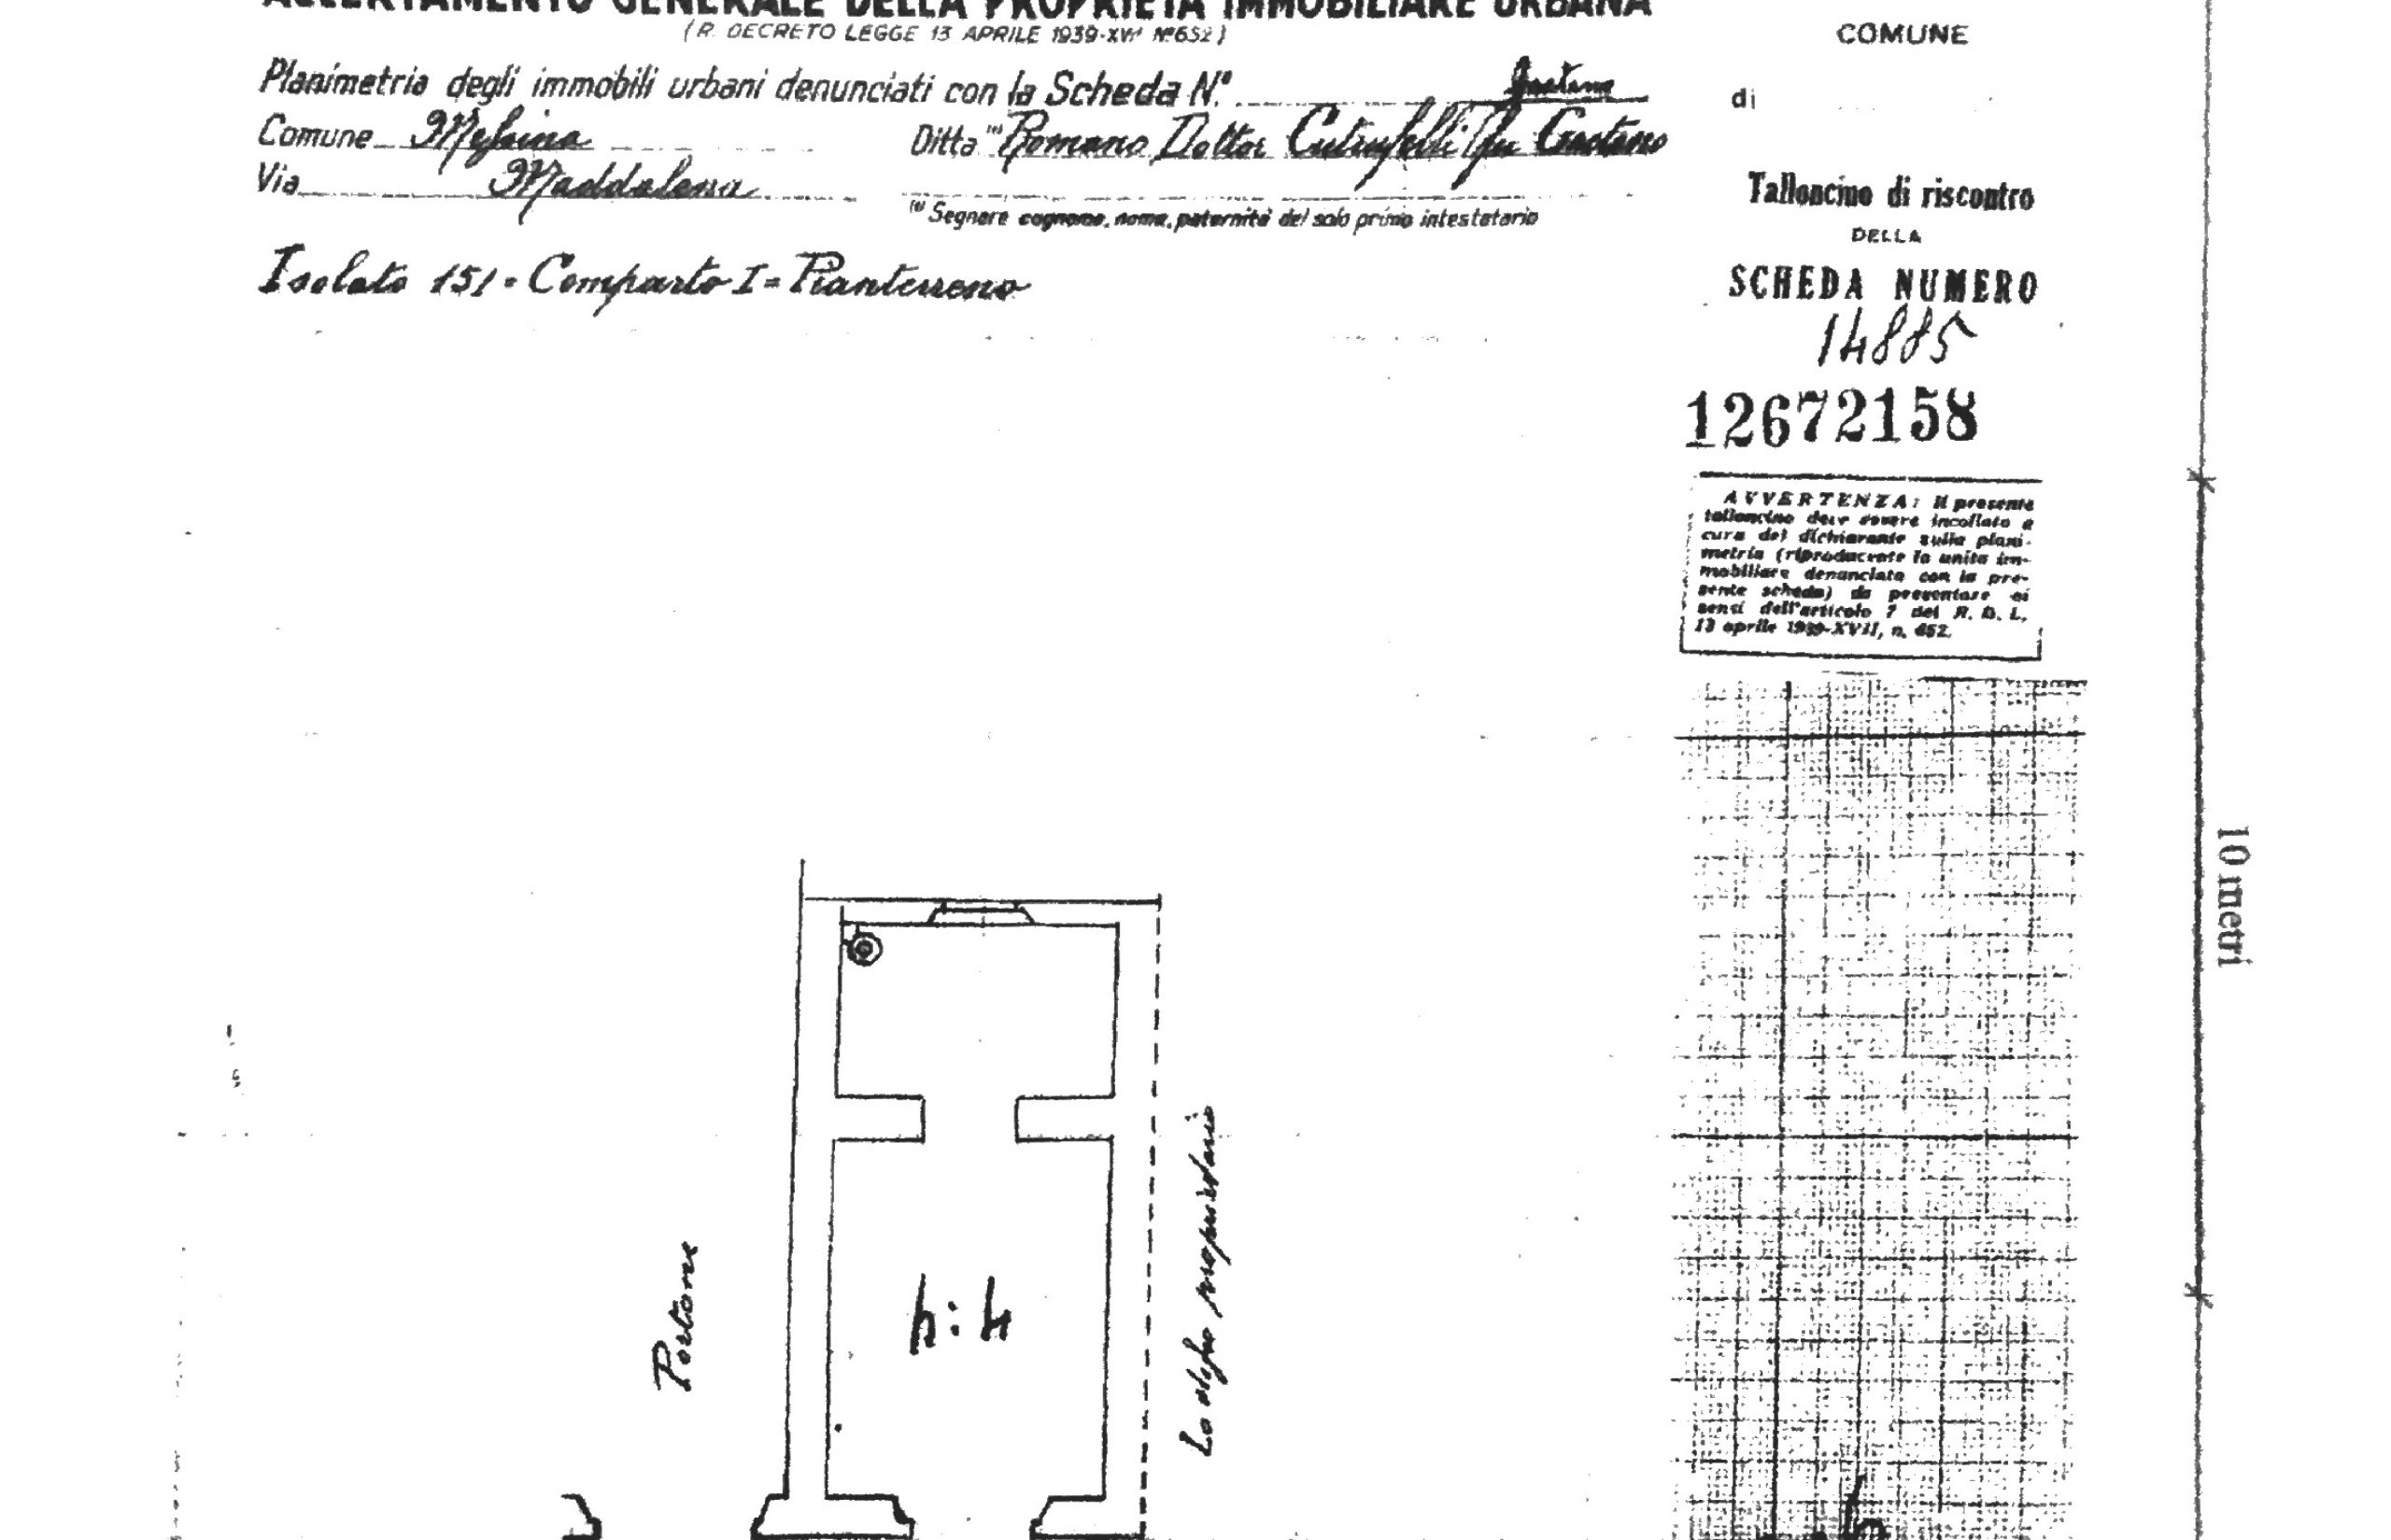 ACCERTAMENTO GENERALE DELLA PROPRIETÀ IMMOBILIARE URBANA
(R. DECRETO LEGGE 13 APRILE 1939-XVII N°652)
Planimetria degli immobili urbani denunciati con la Scheda N.°
Gaetano
Comune Messina
Ditta (1) Romano Dottor Cutrufelli fu Gaetano
Via Maddalena
(1) Segnare cognome, nome, paternità del solo primo intestatario
Isolato 151 = Comparto I = Pianterreno
COMUNE
di
Talloncino di riscontro
DELLA
SCHEDA NUMERO
14885
12672158
AVVERTENZA: Il presente
talloncino deve essere incollato a
cura del dichiarante sulla plani-
metria (riproducente la unità im-
mobiliare denunciata con la pre-
sente scheda) da presentare ai
sensi dell'articolo 7 del R. D. L.
13 aprile 1939-XVII, n. 652.
10 metri
Portone
h:4
Lo stesso proprietario